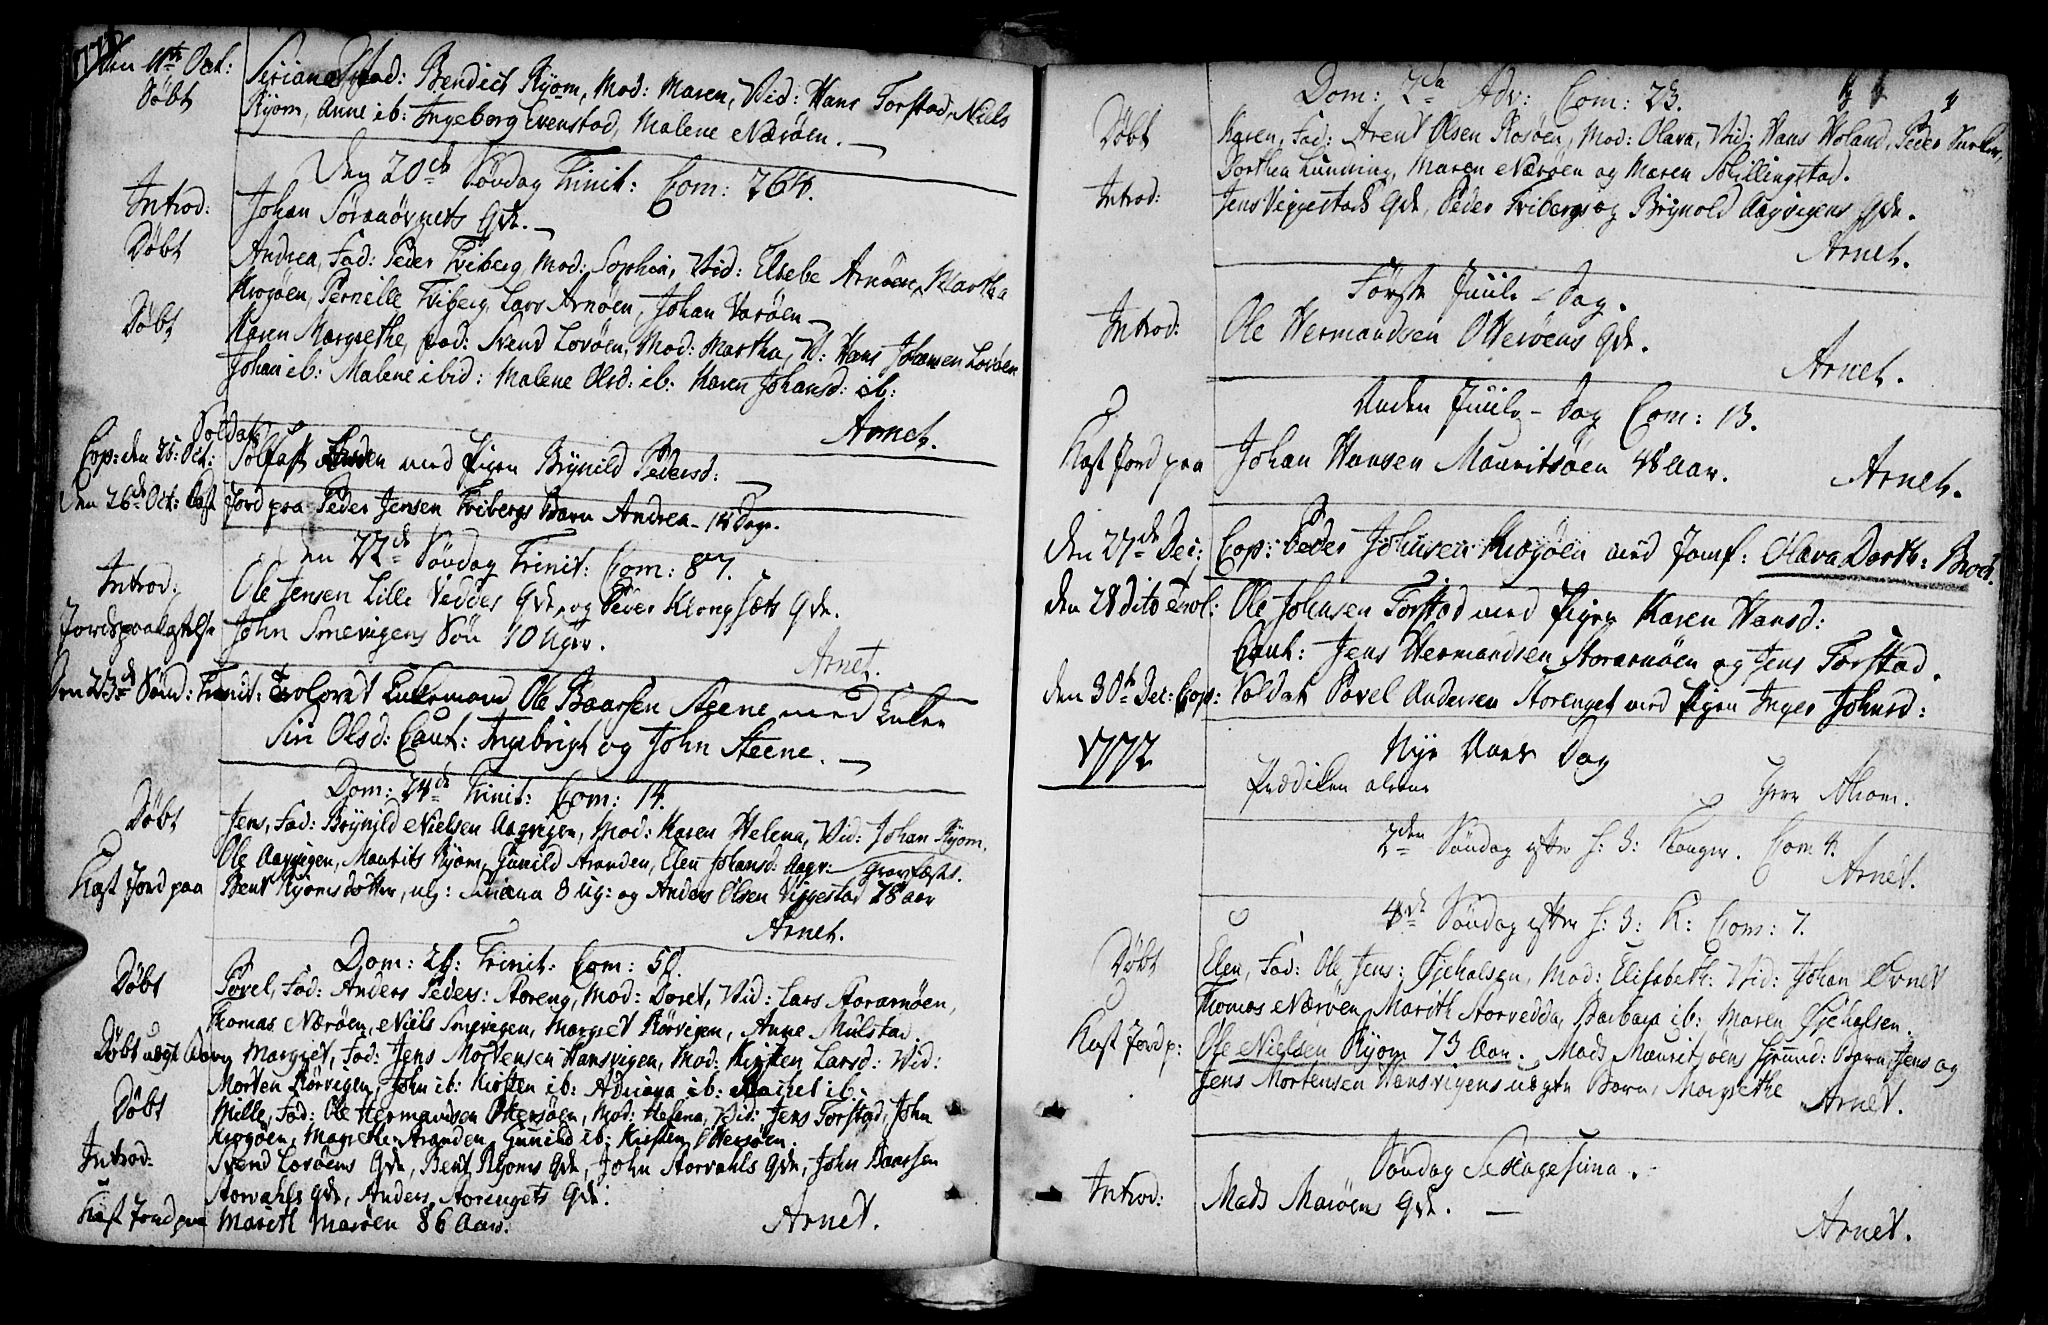 den 11te Oct: Døbt
Siriana, Fad: Bendict Ryom, Mod: Maren, Vid: Hans Forstad, Niels
Ryom, Anne ib: Ingeborg Evenstad, Malene Nærøen.
Den 20de Søndag Trinit: Com: 264.
Introd: Johan Sørnaøynets Qde.
Døbt Andrea, Fad: Peder Friberg, Mod: Sophia, Vid: Elsebe Arnøen, Martha
Krogøen, Pernelle Friberg, Lars Arnøen, Johan Varøen
Døbt Karen Margrethe, Fad: Svend Lovøen, Mod: Martha, V: Hans Johansen Lovøen
Johan ib: Malene ibid: Malene Olsd: ib: Karen Johansd: ib:
Arnet.
Cop: den 25: Oct: Soldat Tolfast med Pigen Brynild Pedersd:
Den 26de Oct: Kast Jord paa Peder Jensen Fribergs Barn Andrea 14 Dage.
Den 22de Søndag Trinit: Com: 87.
Introd: Ole Jensen Lille Veddes Qde, og Peder Klongsets Qde.
Jordspaakastelse John Smevigens Søn 10 Uger.
Arnet.
Den 23de Sønd: Trinit: Trolovet Enkemand Ole Baarsen Steene med Enken
Siri Olsd: Caut: Ingebrigt og John Steene.
Dom: 24de Trinit: Com: 14.
Døbt Jens, Fad: Brynild Nielsen Aagvigen, Mod: Karen Helena, Vid: Johan Ryom,
Ole Aagvigen, Maurits Ryom, Gunild Aranden, Elen Johansd: Aagv:
Kast Jord paa Bent Ryoms Dotter, nlg: Siriana 8 Ug: og Anders Olsen Viggestad 28 Aar
Arnet.
Dom: 26: Trinit: Com: 56.
Døbt Povel, Fad: Anders Peders: Storeng, Mod: Doret, Vid: Lars Storarnøen,
Thomas Nærøen, Niels Smevigen, Margret Rørvigen, Anne Mulstad
Døbt uegt Barn Margret, Fad: Jens Mortensen Hansvigen, Mod: Kirsten Larsd: Vid:
Morten Rørvigen, John ib: Kirsten ib: Adriana ib: Rachel ib:
Døbt Nille, Fad: Ole Hermandsen Ottersøen, Mod: Helena, Vid: Jens Forstad, John
Krogøen, Magrethe Aranden, Gunild ib: Kirsten Ottersøen.
Introd: Svend Lovøens Qde, Bent Ryoms Qde, John Storvahls Qde, John Baarsen
Storvahls Qde, Anders Storengets Qde.
Kast Jord paa Marith Marøen 86 Aar.
Arnet.
Dom: 2da Adv: Com: 23.
Døbt Karen, Fad: Arent Olsen Rosøen, Mod: Olava, Vid: Hans Holand, Peder
Dorthea Lunding, Maren Nærøen og Maren Skillingstad.
Introd: Jens Viggestads Qde, Peder Fribergs og Brynold Aagvigens Qde.
Arnet.
Første Juule-Dag.
Introd: Ole Hermandsen Otterøens Qde.
Arnet.
Anden Juule-Dag Com: 13.
Kast Jord paa Johan Hansen Mauritsøen 48 Aar.
Arnet.
Den 27de Dec: Cop: Peder Johnsen Krogøen med Jomf: Olava Dorth: Brock.
den 28 dito Trol: Ole Johnsen Forstad med Pigen Karen Hansd:
Caut: Jens Hermandsen Storarnøen og Jens Forstad.
den 30te Dec: Cop: Soldat Povel Andersen Storenget med Pigen Inger Johnsd:
1772
Nye Aars Dag
Prædiken alene Herr Strøm.
2den Søndag efter H: 3: Konger. Com 4.
Arnet.
4de Søndag efter H: 3: K: Com: 7.
Døbt Elen, Fad: Ole Jens: Gjeholsen, Mod: Elisabeth: Vid: Johan Øvnet
Thomas Nærøen, Marith Storvedda, Barbara ib: Maren Gjeholsen.
Kast Jord p: Ole Nielsen Ryom 73 Aar. Mads Mauritsøens Barn, Jens og
Jens Mortensen Hansvigens uegte Barn, Margrethe
Arnet.
Søndag Sexagesima.
Introd: Mads Marøens Qde.
Arnet.